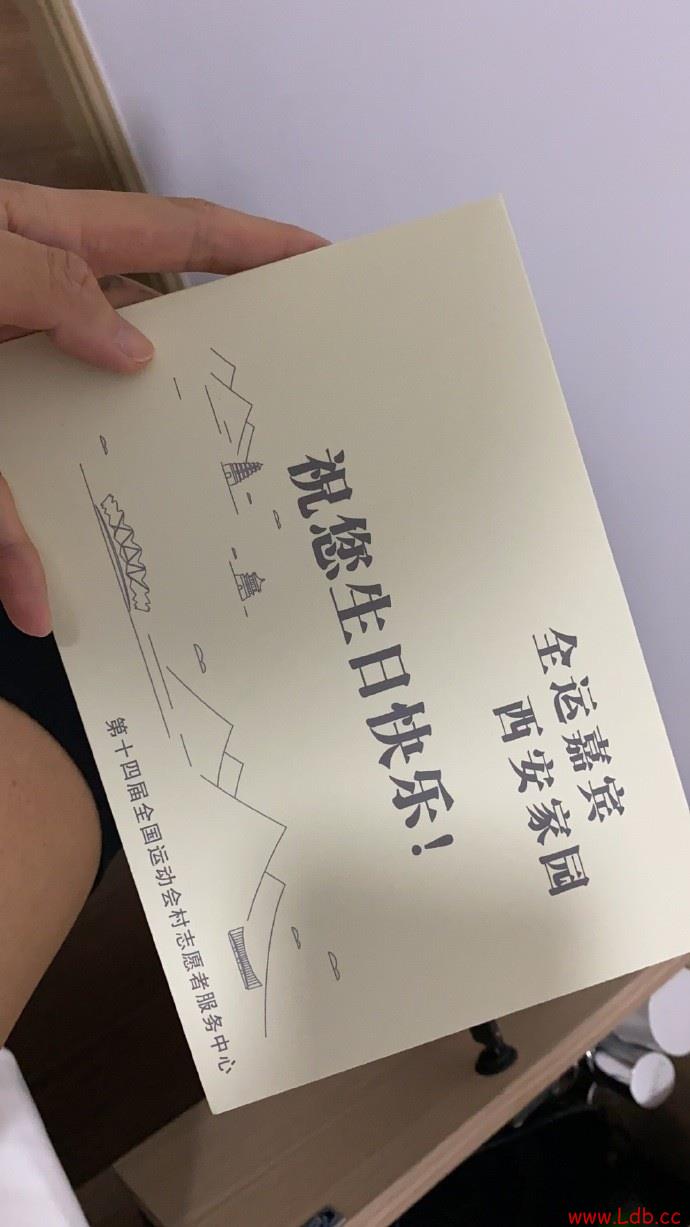 全运嘉宾
西安家园
祝您生日快乐！
第十四届全国运动会村志愿者服务中心
www.Ldb.cc